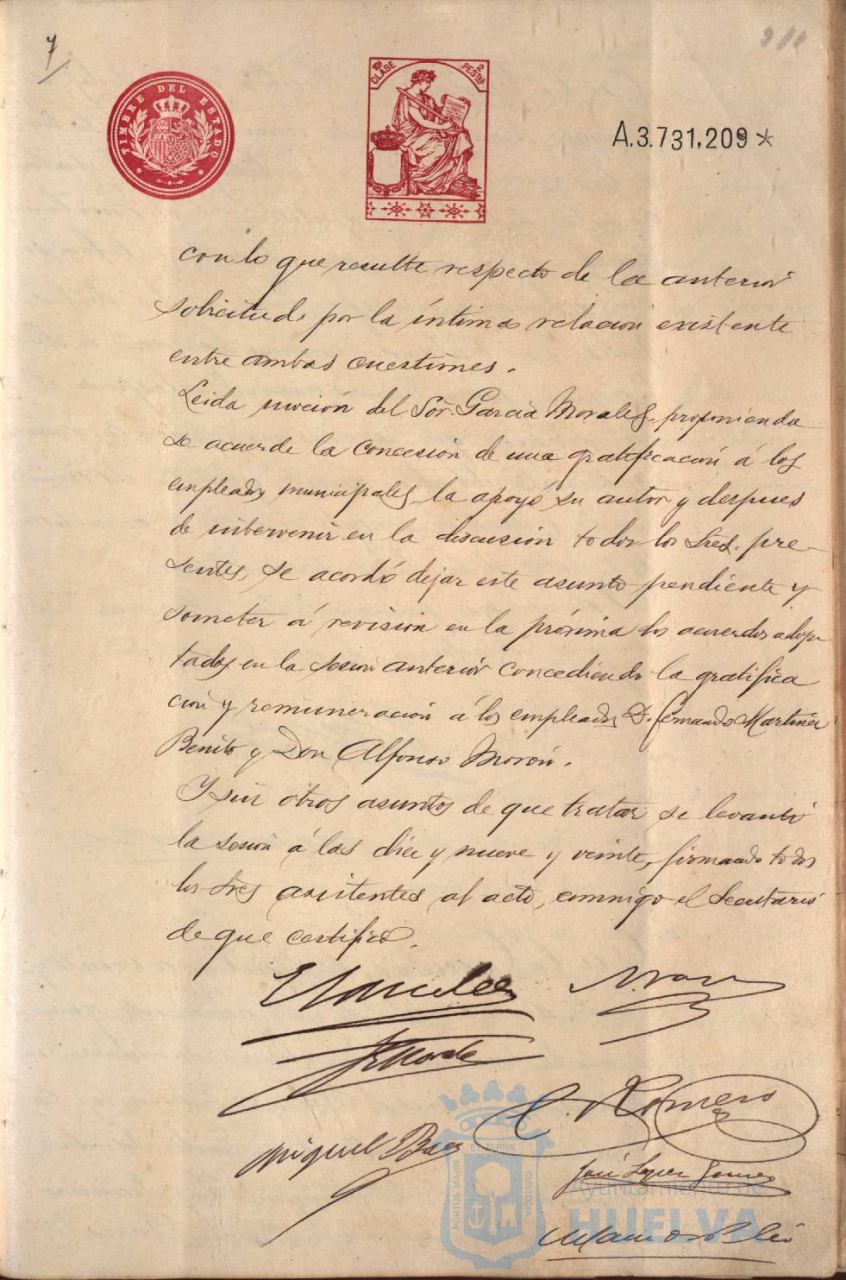 7
911
TIMBRE DEL ESTADO
10ª CLASE
2 PESTAS
A.3.731,209*
con lo que resulte respecto de la anterior
solicitud por la íntima relacion existente
entre ambas cuestiones.
Leida moción del Sor. Garcia Morales, proponiendo
se acuerde la concesión de una gratificación á los
empleados municipales, la apoyó su autor y despues
de intervenir en la discusión todos los Sres. pre-
sentes, se acordó dejar este asunto pendiente y
someter á revision en la próxima los acuerdos adop-
tados en la sesion anterior concediendo la gratifica
cion y remuneración á los empleados D. Fernando Martinez
Benito y Don Alfonso Morón.
Y sin otros asuntos de que tratar se levantó
la sesion á las diez y nueve y veinte, firmando todos
los Sres asistentes al acto, conmigo el Secretario
de que certifico.
C. Romero
Miguel Baez
José Lopez Gomez
PORTUS MARIS ET TERRAE CUSTODIA
Ayuntamiento de
HUELVA